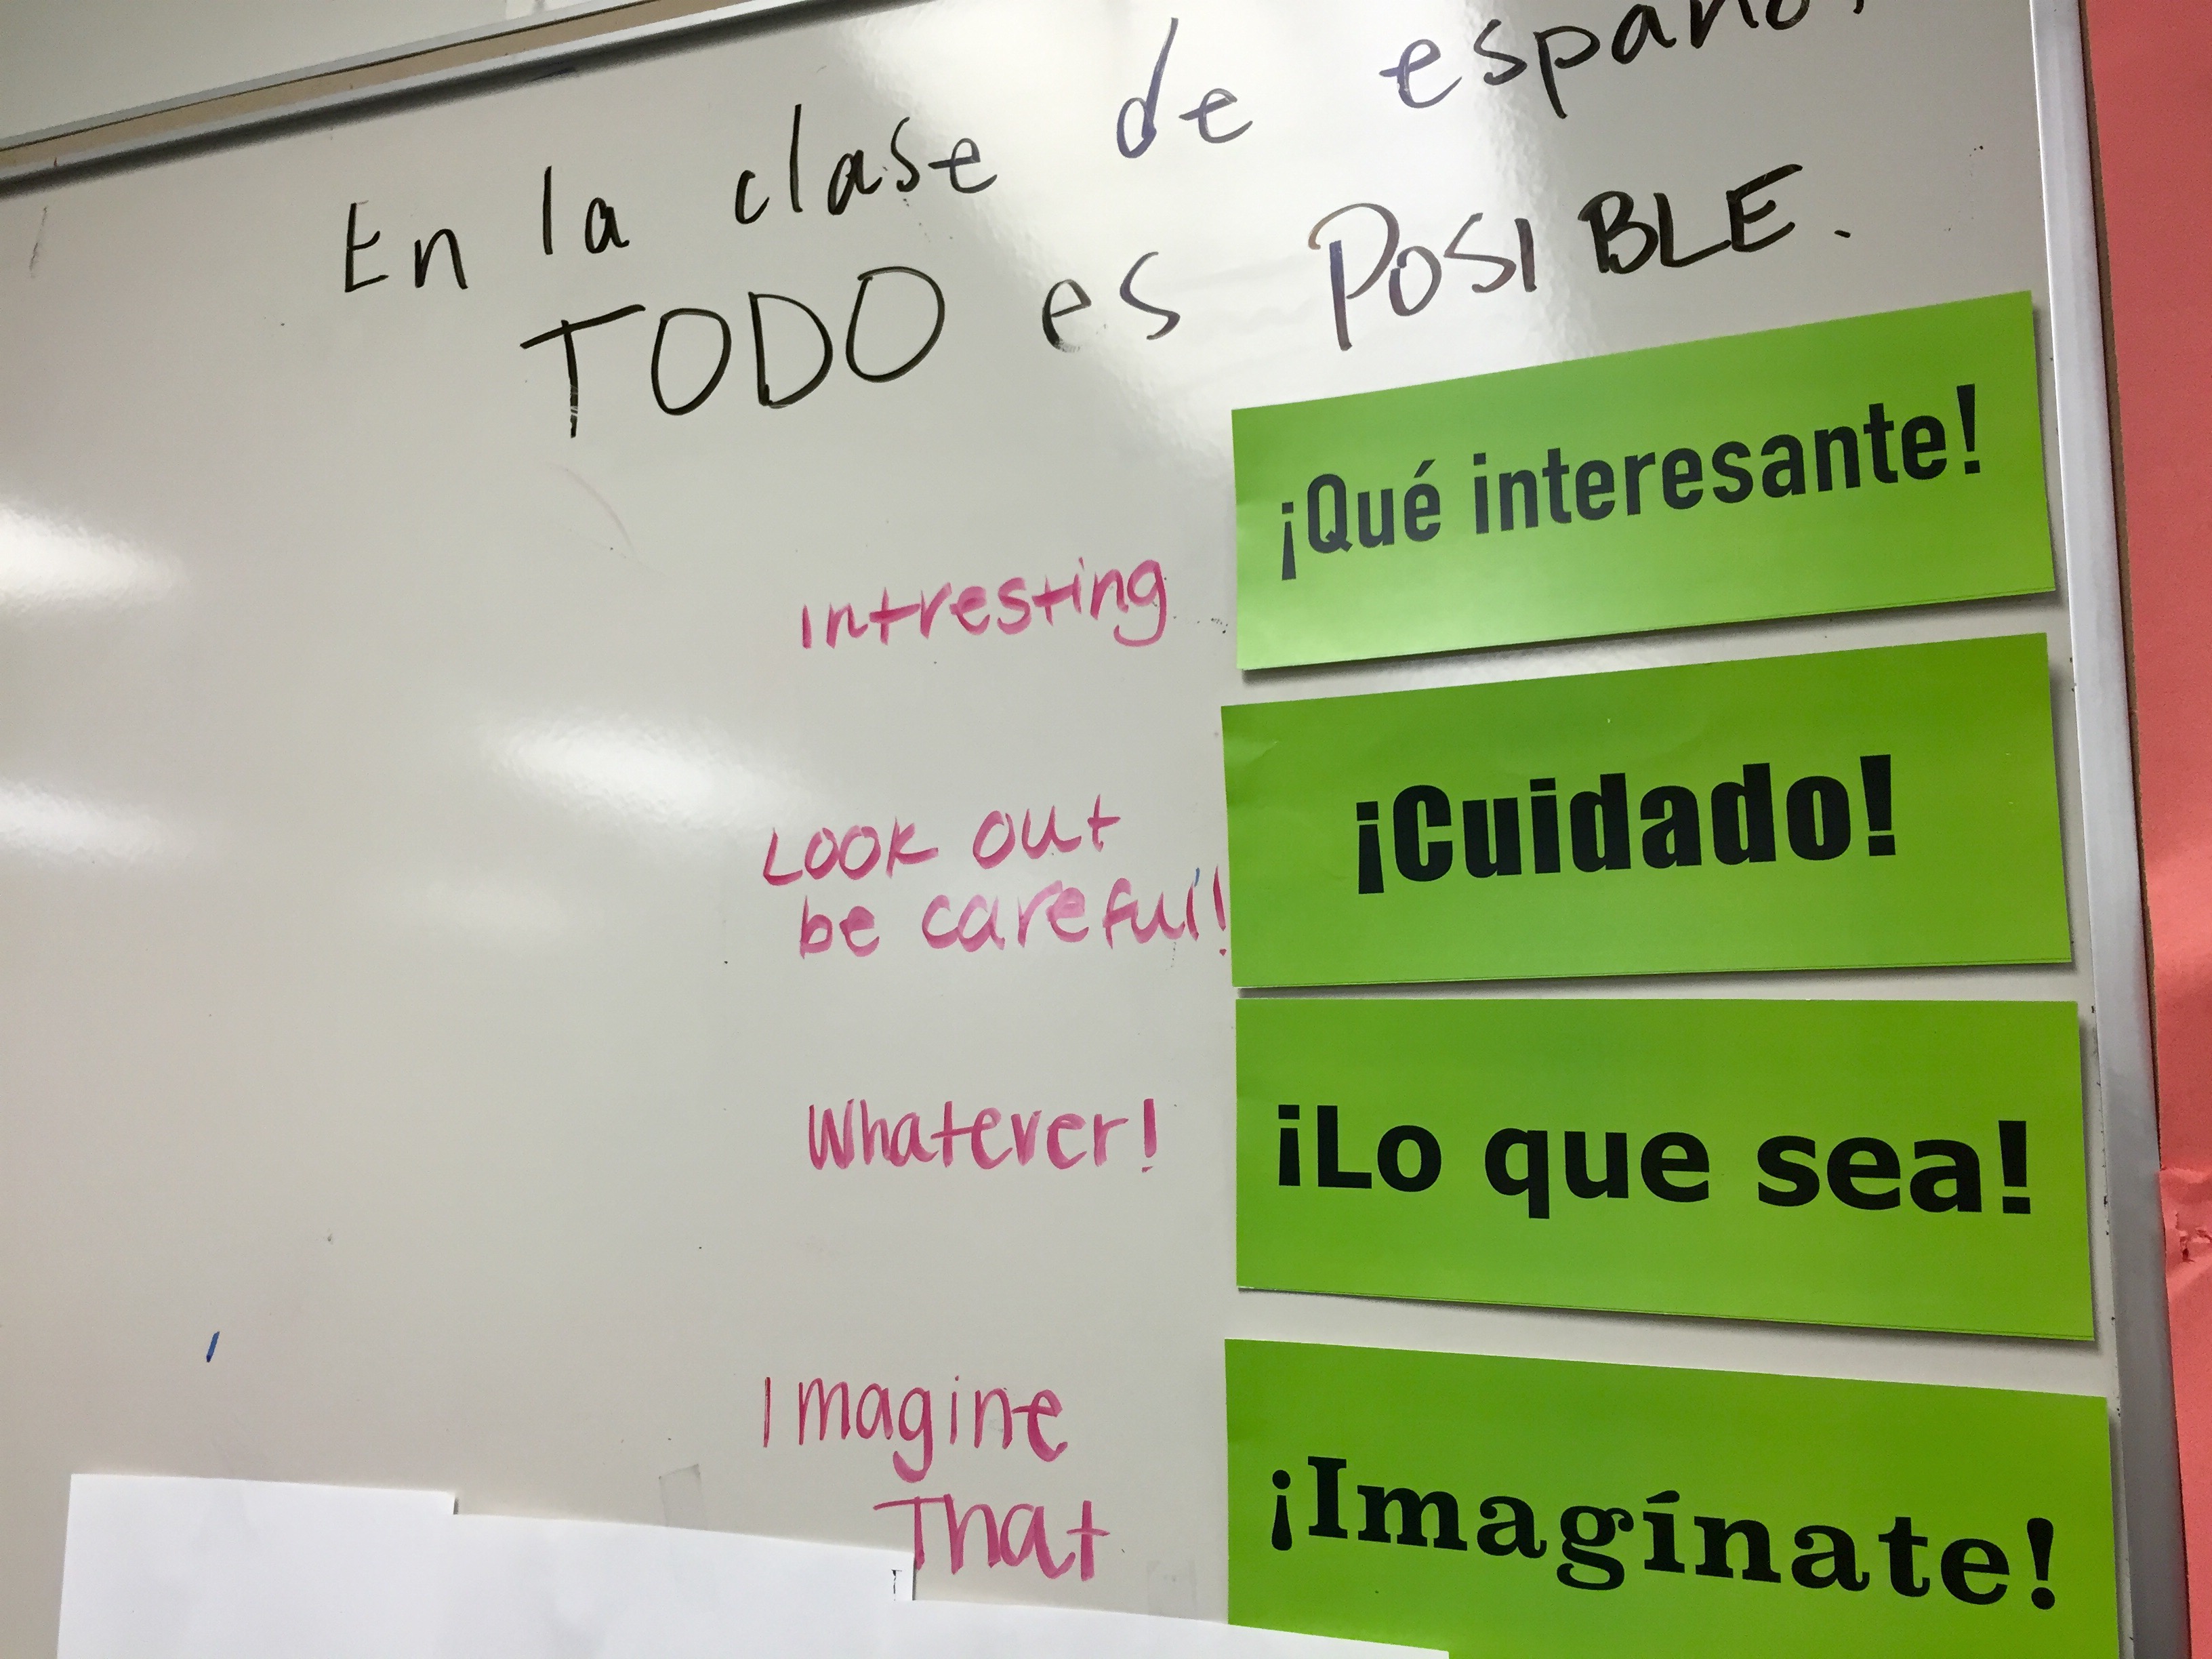 En la clase de español
TODO es POSIBLE.
¡Qué interesante!
Intresting
¡Cuidado!
Look out
be careful!
¡Lo que sea!
Whatever!
¡Imagínate!
Imagine
That